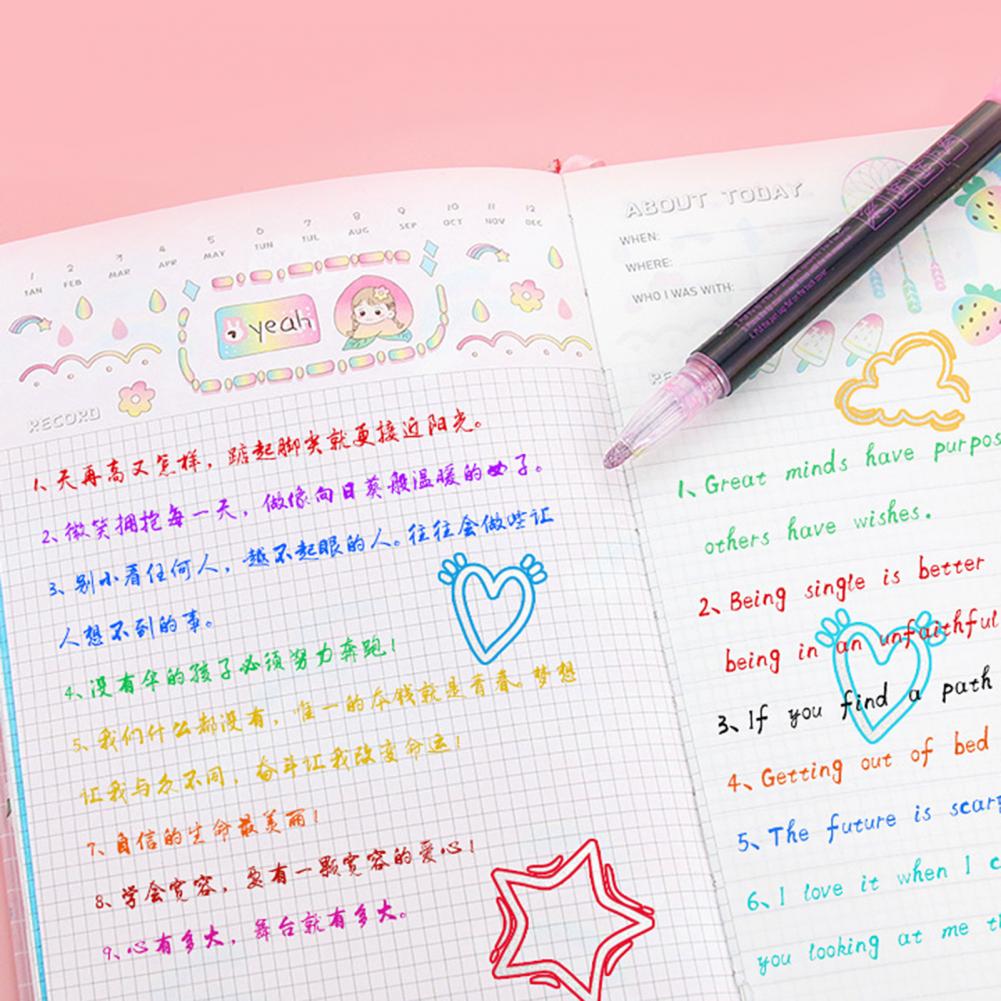 1 2 3 4 5 6 7 8 9 10 11 12
JAN FEB MAR APR MAY JUN JUL AUG SEP OCT NOV DEC
yeah
RECORD
1、天再高又怎样，踮起脚尖就更接近阳光。
2、微笑拥抱每一天，做像向日葵般温暖的女子。
3、别小看任何人，越不起眼的人。往往会做些让
人想不到的事。
4、没有伞的孩子必须努力奔跑！
5、我们什么都没有，唯一的本钱就是青春。梦想
让我与众不同，奋斗让我改变命运！
7、自信的生命最美丽！
8、学会宽容，要有一颗宽容的爱心！
9、心有多大，舞台就有多大。
ABOUT TODAY
WHEN:
WHERE:
WHO I WAS WITH:
1、Great minds have purpos
others have wishes.
2、Being single is better
being in an unfaithful
3、If you find a path
4、Getting out of bed
5、The future is scar
6、I love it when I c
you looking at me th